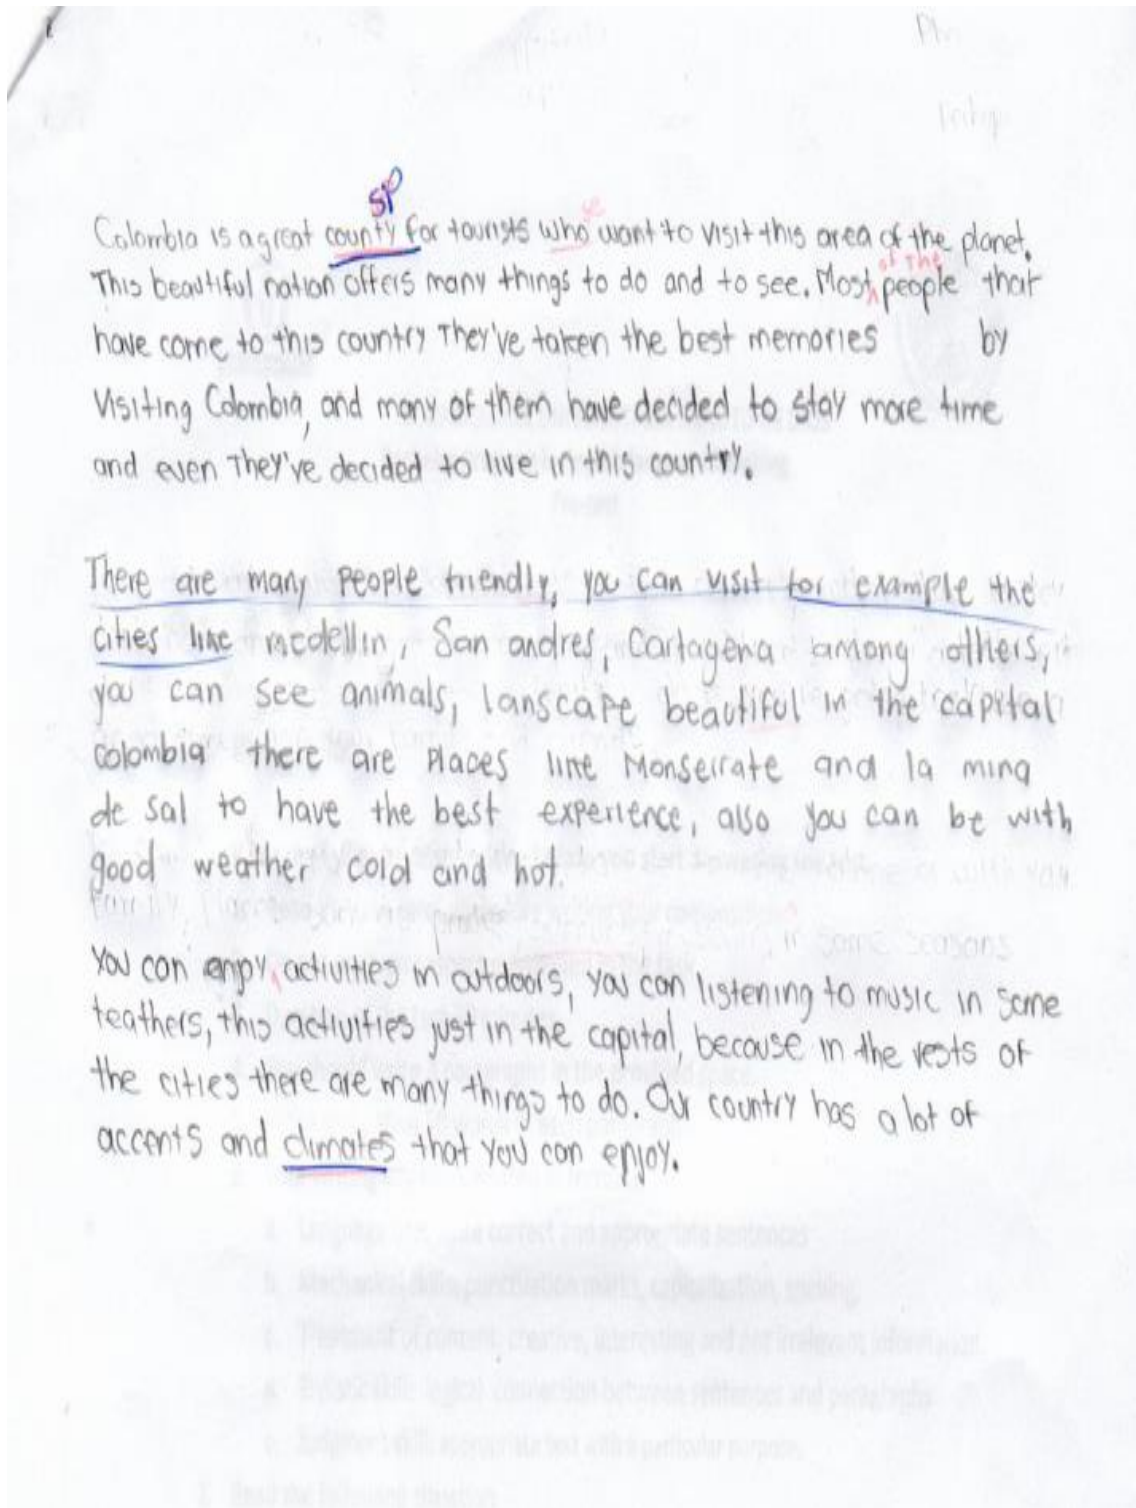 sp
Colombia is a great county for tourists who want to visit this area of the planet.
of the
This beautiful nation offers many things to do and to see. Most people that
have come to this country They've taken the best memories by
Visiting Colombia, and many of them have decided to stay more time
and even They've decided to live in this country.
There are many people friendly, you can visit for example the
cities like medellin, San andres, Cartagena among others,
you can see animals, lanscape beautiful in the capital
colombia there are Places like Monserrate and la mina
de sal to have the best experience, also you can be with
good weather cold and hot.
in some seasons
You can enjoy activities in outdoors, you can listening to music in some
teathers, this activities just in the capital, because in the rests of
the cities there are many things to do. Our country has a lot of
accents and climates that you can enjoy.